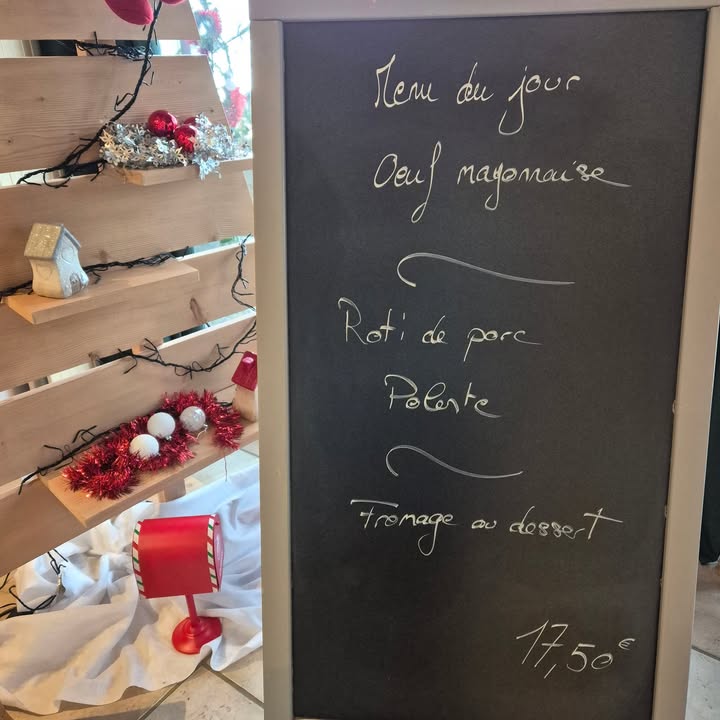 Menu du jour
Oeuf mayonnaise
Roti de porc
Polente
Fromage ou dessert
17,50€